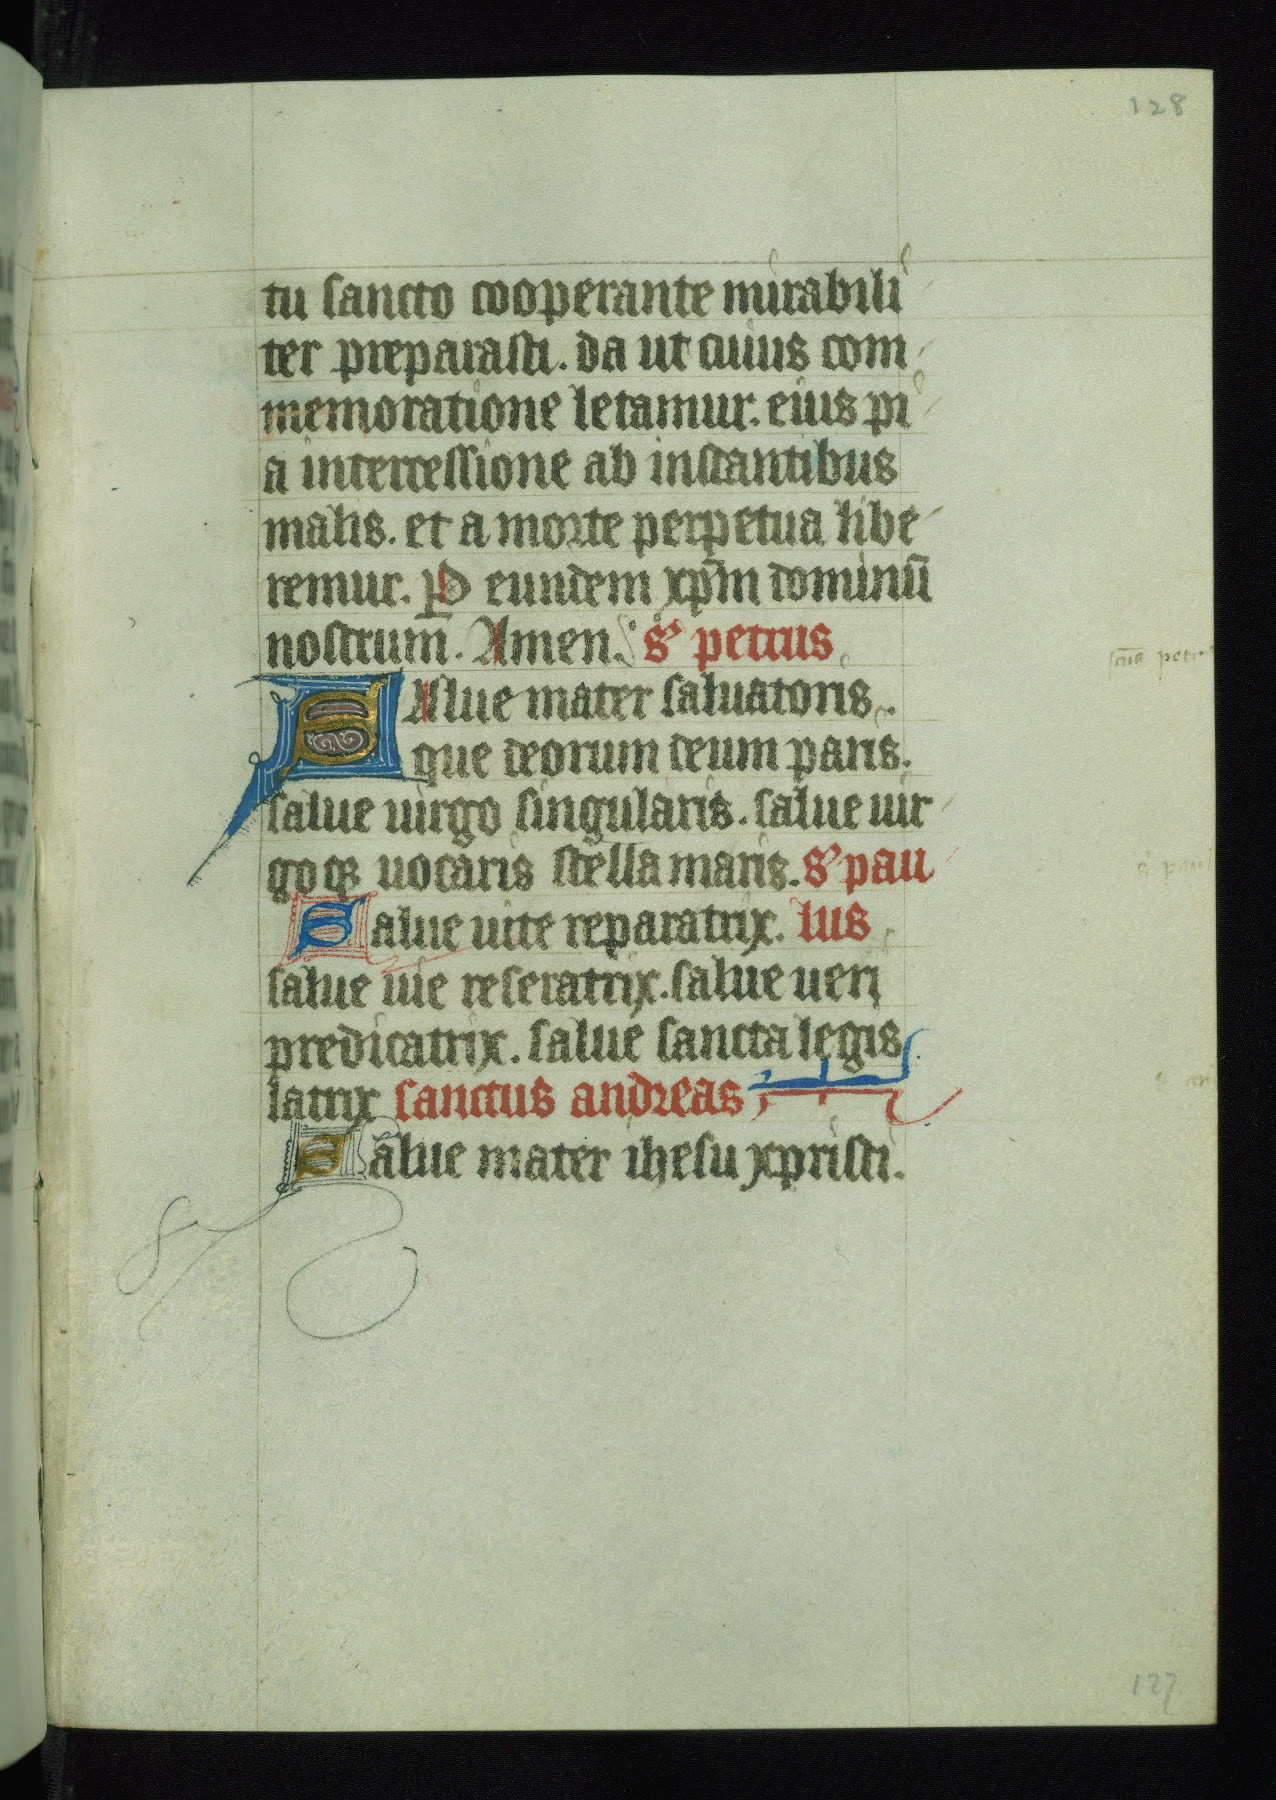 128
tu sancto cooperante mirabili
ter preparasti. da ut cuius com
memoratione letamur. eius pi
a intercessione ab instantibus
malis. et a morte perpetua libe
remur. P eundem xp̄m dominū
nostrum̄. Amen. s' petrus
SAlue mater saluatoris.
que deorum deum paris.
salue uirgo singularis. salue uir
goqꝫ uocaris stella maris. s' pau
Salue uite reparatrix. lus
salue uie reseratrix. salue ueri
predicatrix. salue sancta legis
latrix sanctus andreas
Salue mater ihesu xpristi.
127